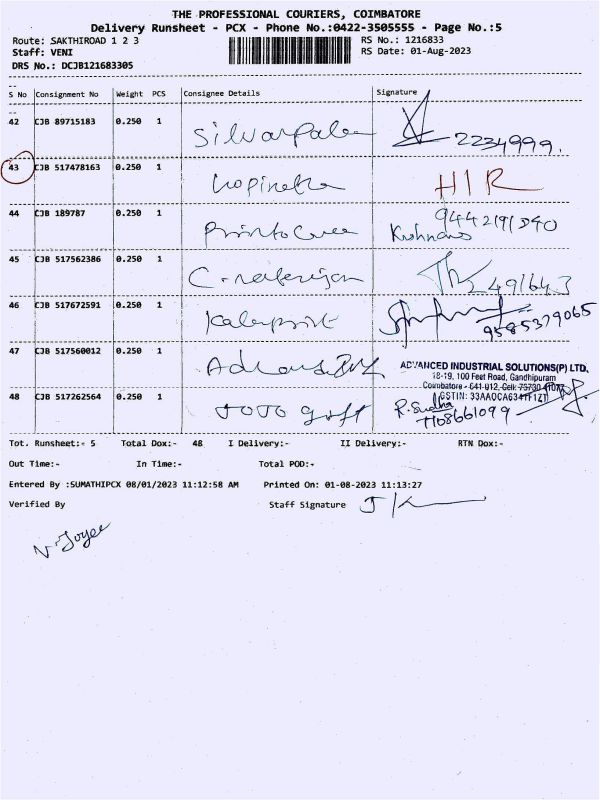 THE PROFESSIONAL COURIERS, COIMBATORE
Delivery Runsheet - PCX - Phone No.:0422-3505555 - Page No.:5
Route: SAKTHIROAD 1 2 3 RS No.: 1216833
Staff: VENI RS Date: 01-Aug-2023
DRS No.: DCJB121683305
S No Consignment No Weight PCS Consignee Details Signature
42 CJB 89715183 0.250 1 2234999.
43 CJB 517478163 0.250 1 HIR
44 CJB 189787 0.250 1
45 CJB 517562386 0.250 1
46 CJB 517672591 0.250 1 9585379065
47 CJB 517560012 0.250 1
ADVANCED INDUSTRIAL SOLUTIONS(P) LTD,
18-19, 100 Feet Road, Gandhipuram
Coimbatore - 641 012, Cell:
48 CJB 517262564 0.250 1 JOJO gift R. Sudha
7708661099
Tot. Runsheet:- 5 Total Dox:- 48 I Delivery:- II Delivery:- RTN Dox:-
Out Time:- In Time:- Total POD:-
Entered By :SUMATHIPCX 08/01/2023 11:12:58 AM Printed On: 01-08-2023 11:13:27
Verified By Staff Signature